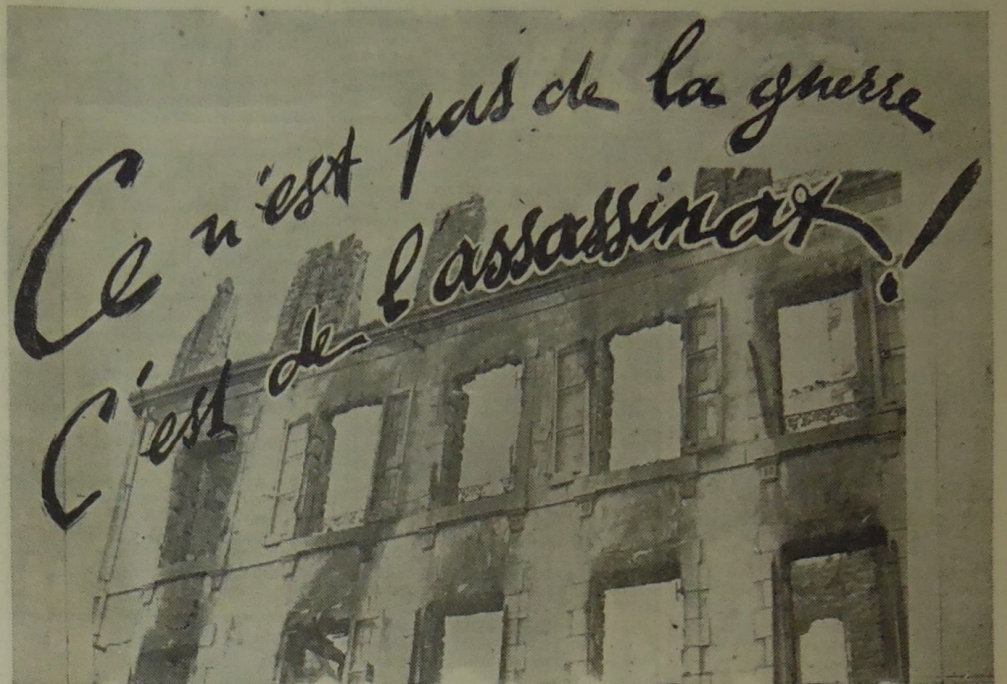 Ce n'est pas de la guerre
C'est de l'assassinat !